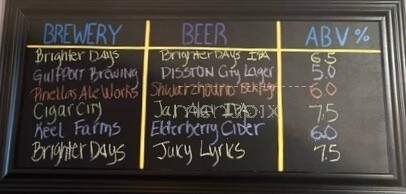 BREWERY BEER ABV%
Brighter Days Brighter Days IPA 6.5
Gulfport Brewing DISSTON City Lager 5.0
Pinellas Ale Works 6.0
Cigar City IPA 7.5
Keel Farms Elderberry Cider 6.0
Brighter Days Juicy Lyrics 7.5